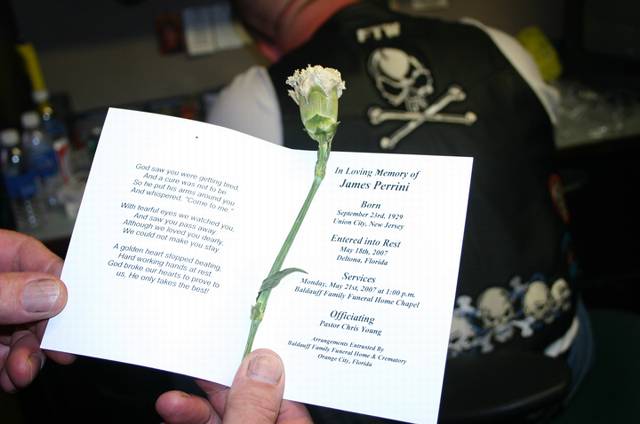 God saw you were getting tired,
And a cure was not to be.
So he put his arms around you
And whispered, "Come to me."
With tearful eyes we watched you,
And saw you pass away.
Although we loved you dearly,
We could not make you stay.
A golden heart stopped beating,
Hard working hands at rest.
God broke our hearts to prove to
us, He only takes the best!
In Loving Memory of
James Perrini
Born
September 23rd, 1929
Union City, New Jersey
Entered into Rest
May 18th, 2007
Deltona, Florida
Services
Monday, May 21st, 2007 at 1:00 p.m.
Baldauff Family Funeral Home Chapel
Officiating
Pastor Chris Young
Arrangements Entrusted By
Baldauff Family Funeral Home & Crematory
Orange City, Florida
FTW